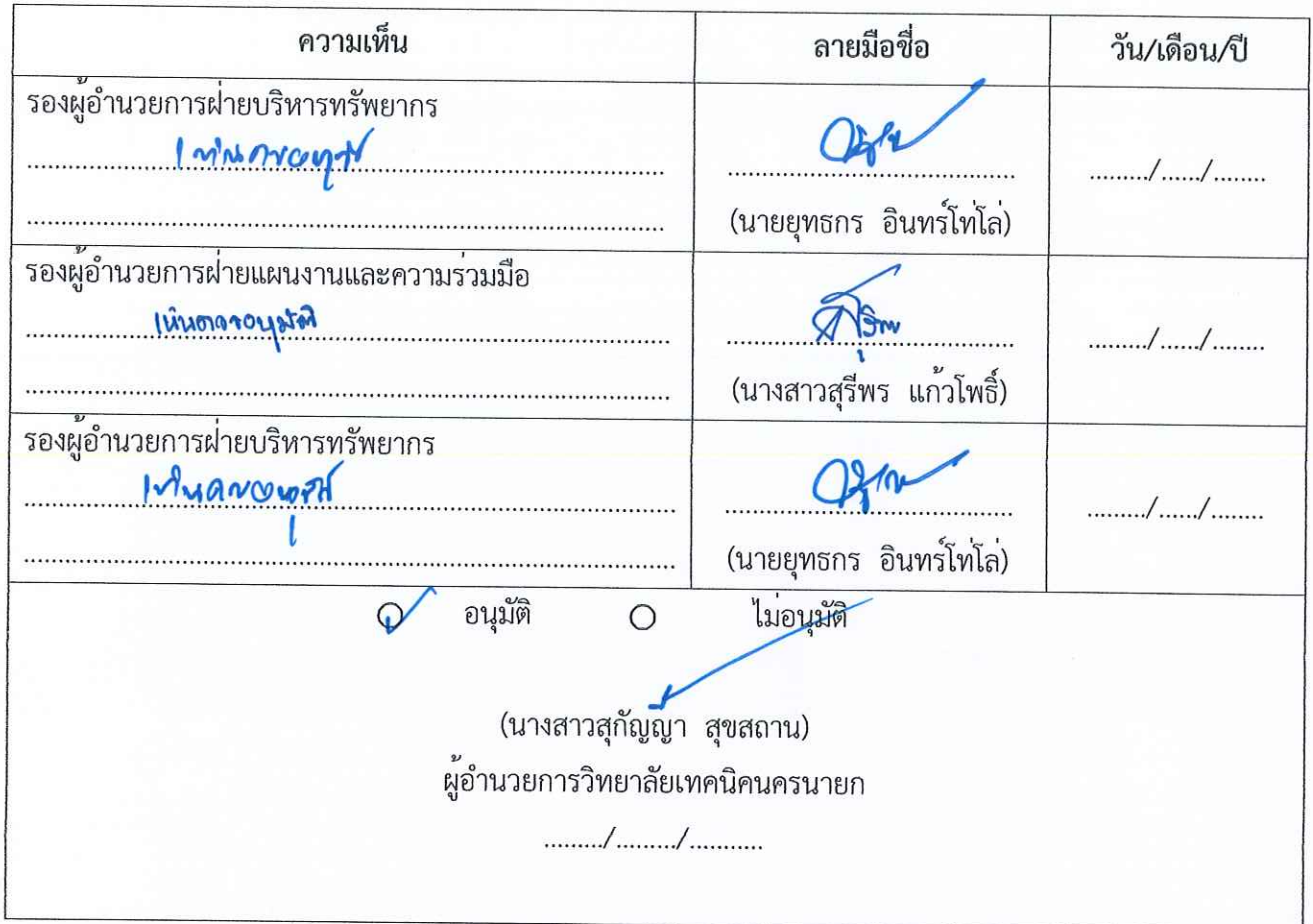 ความเห็น ลายมือชื่อ วัน/เดือน/ปี
รองผู้อำนวยการฝ่ายบริหารทรัพยากร
เห็นควรอนุมัติ ......../....../........
(นายยุทธกร อินทร์โท่โล่)
รองผู้อำนวยการฝ่ายแผนงานและความร่วมมือ
เห็นควรอนุมัติ ......../....../........
(นางสาวสุรีพร แก้วโพธิ์)
รองผู้อำนวยการฝ่ายบริหารทรัพยากร
เห็นควรอนุมัติ ......../....../........
(นายยุทธกร อินทร์โท่โล่)
อนุมัติ ไม่อนุมัติ
(นางสาวสุกัญญา สุขสถาน)
ผู้อำนวยการวิทยาลัยเทคนิคนครนายก
........./........./...........